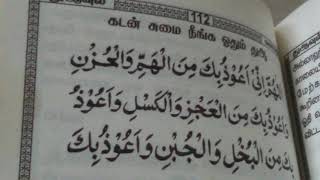 112
கடன் சுமை நீங்க ஓதும் துஆ
اَللّٰهُمَّ اِنِّىْ اَعُوْذُ بِكَ مِنَ الْهَمِّ وَالْحُزْنِ
وَاَعُوْذُ بِكَ مِنَ الْعَجْزِ وَالْكَسْلِ وَاَعُوْذُ
بِكَ مِنَ الْبُخْلِ وَالْجُبْنِ وَاَعُوْذُ بِكَ